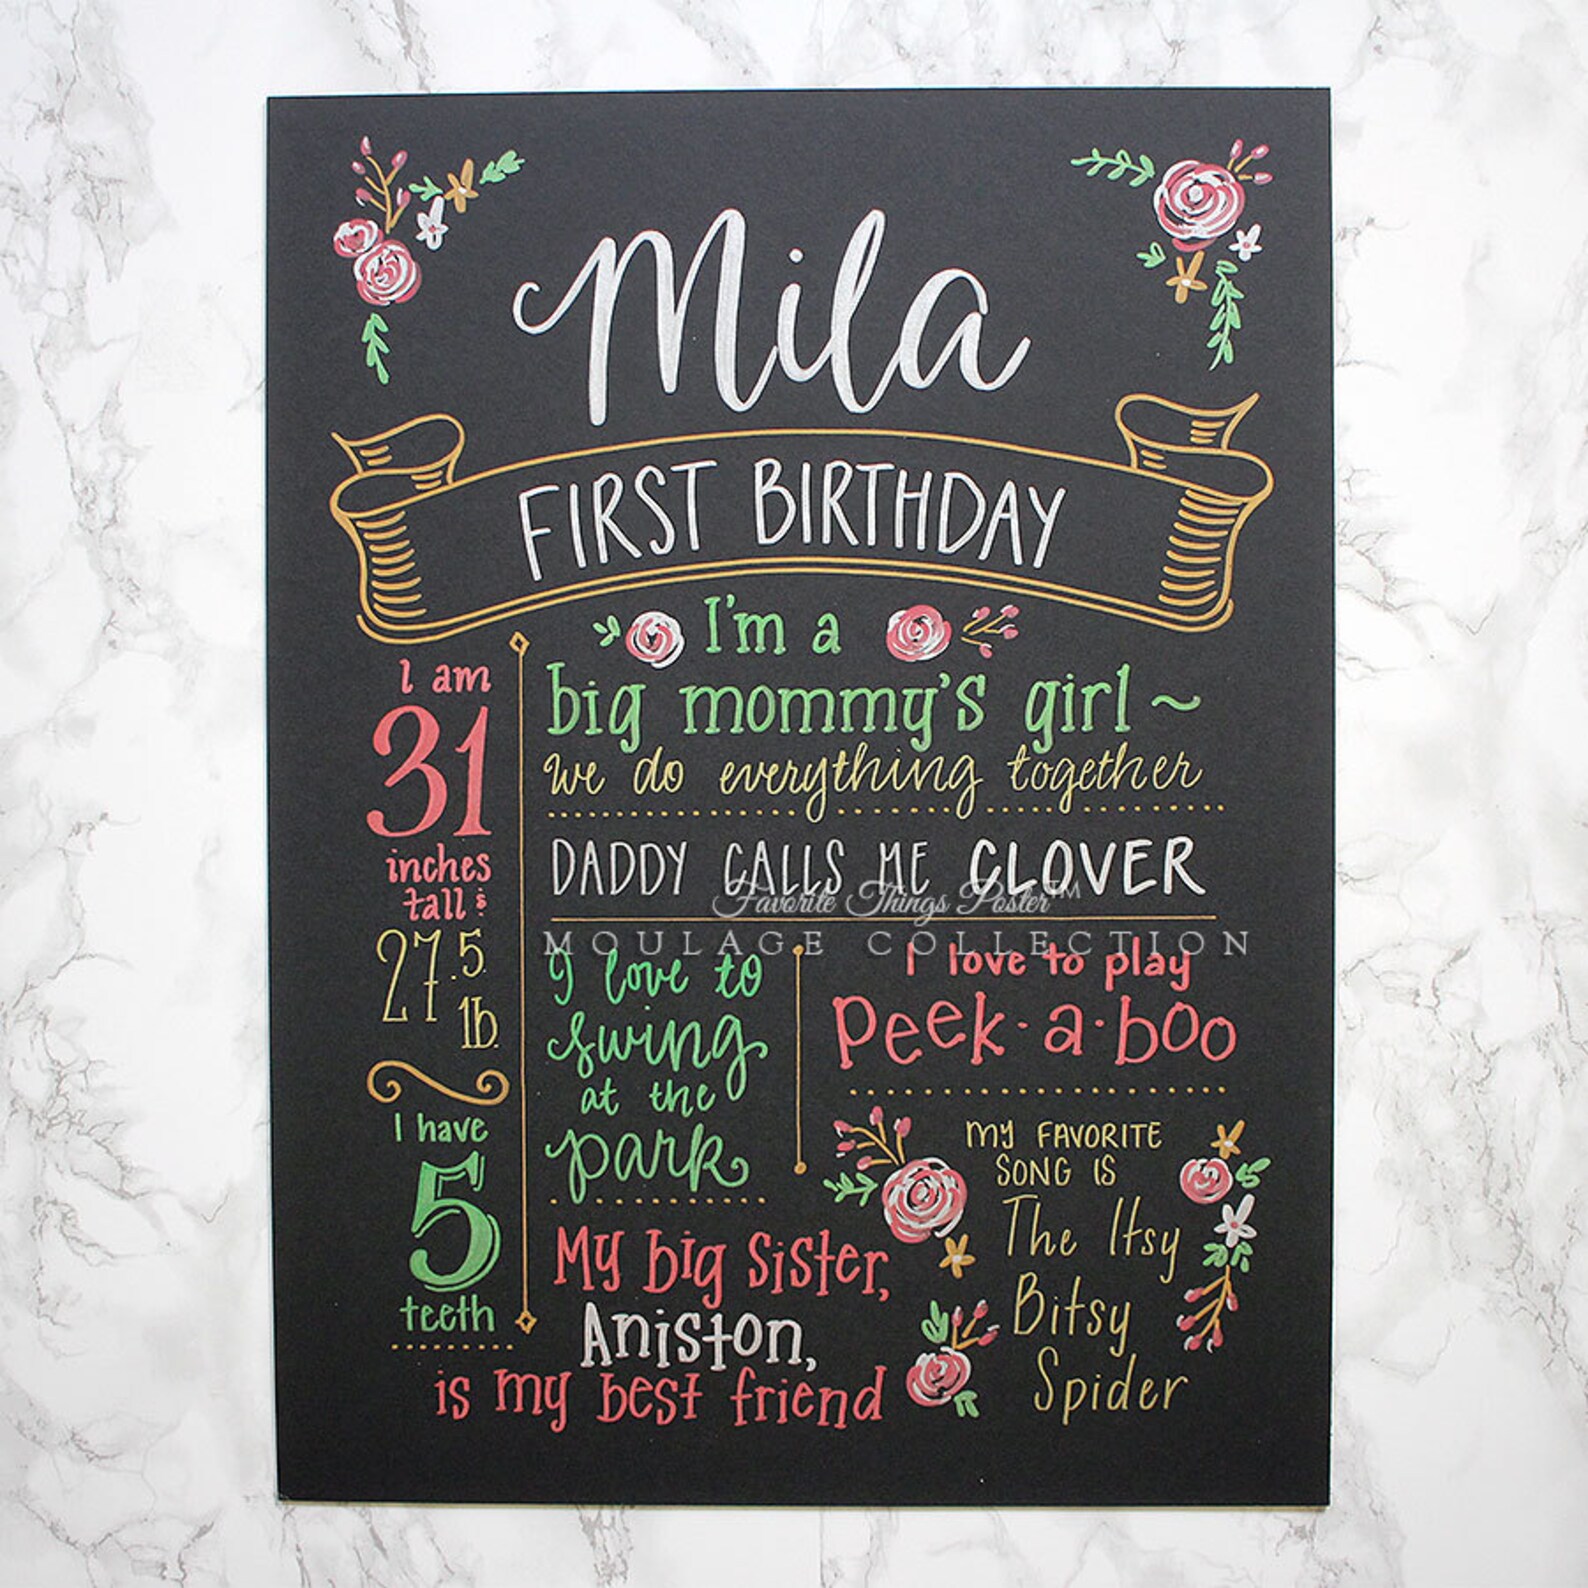 Mila
FIRST BIRTHDAY
I'm a
big mommy's girl ~
we do everything together
DADDY CALLS ME CLOVER
Favorite Things Poster™
MOULAGE COLLECTION
I am
31
inches
tall &
27.5
lb.
I have
5
teeth
I love to
swing
at the
park
I love to play
Peek·a·boo
MY FAVORITE
SONG IS
The Itsy
Bitsy
Spider
My big sister,
Aniston,
is my best friend